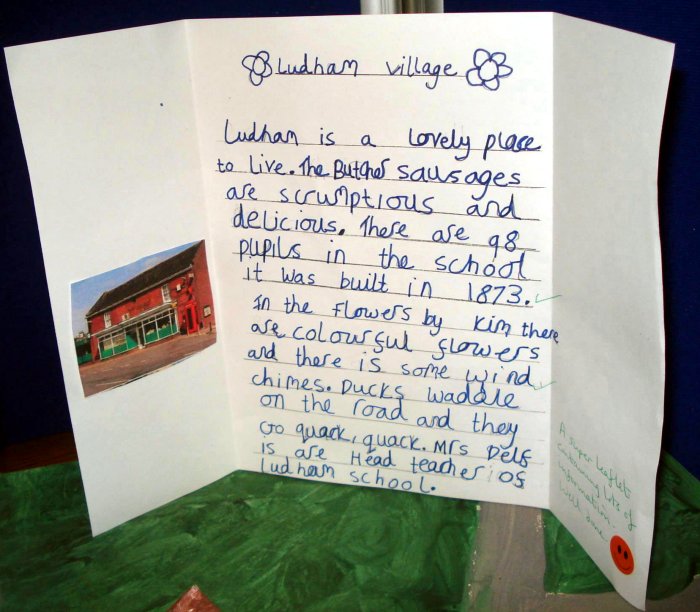 Ludham village
Ludham is a lovely place
to live. The Butcher sausages
are scrumptious and
delicious. There are 98
pupils in the school
it was built in 1873.
In the flowers by Kim there
are colourful flowers
and there is some wind
chimes. Ducks waddle
on the road and they
Go quack, quack. Mrs Delf
is are Head teacher of
ludham school.
A super leaflet
containing lots of
information.
Well done.